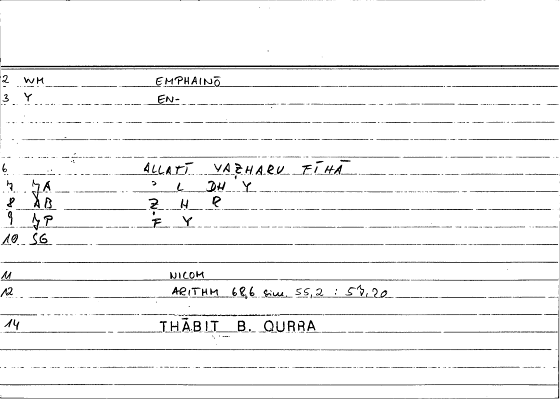 2 WM EMPHAINŌ
3 Y EN-
6 ALLATĪ YAẒHARU FĪHĀ
7 JA ʾ L DH Y
8 AB Ẓ H R
9 JP F Y
10 SG
11 NICOM
12 ARITHM 68,6 sim. 55,2 : 57,20
14 THĀBIT B. QURRA